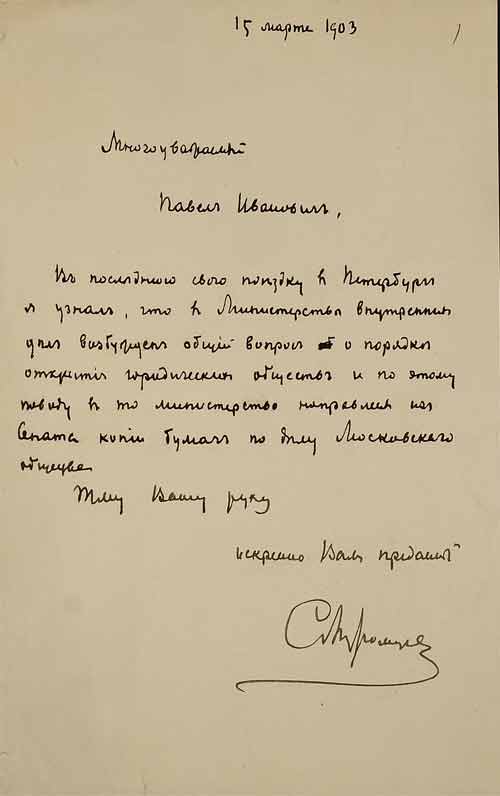 15 марта 1903
Многоуважаемый
Павелъ Ивановичъ,
Въ послѣднюю свою поѣздку въ Петербургъ
я узналъ, что въ Министерствѣ внутреннихъ
дѣлъ возбужденъ общій вопросъ о порядкѣ
открытія юридическихъ обществъ и по этому
поводу въ то министерство направлен из
Сената копіи бумагъ по дѣлу Московскаго
общества
Жму Вашу руку
искренно Вамъ преданный